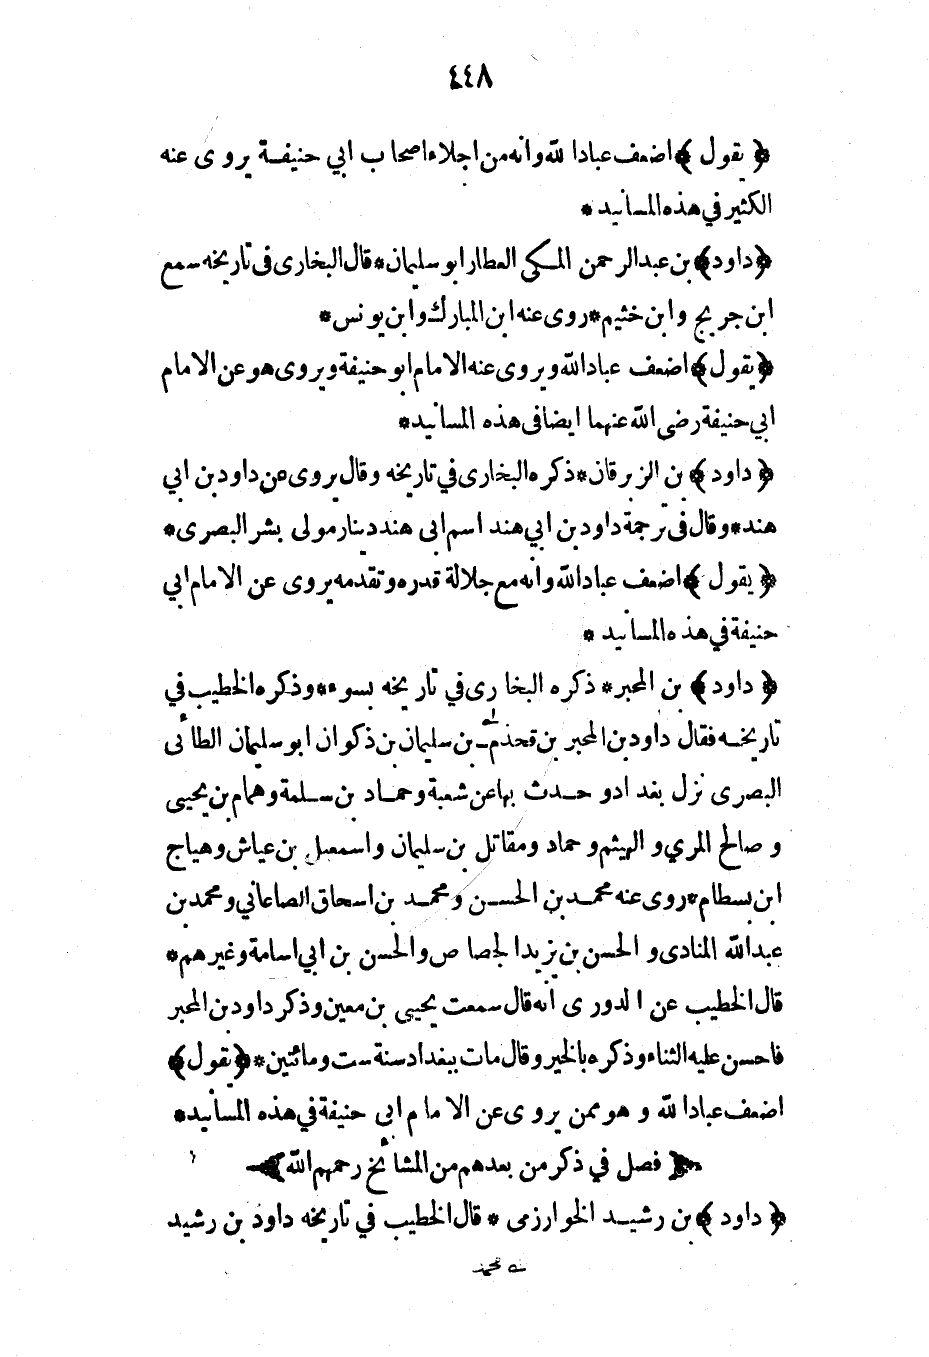 ٤٤٨
﴿ يقول ﴾ اضعف عباد الله وانه من اجلاء اصحاب ابي حنيفة يروى عنه
الكثير في هذه المسانيد *
﴿ داود ﴾ بن عبد الرحمن المكي العطار ابو سليمان * قال البخارى فى تاريخه سمع
ابن جريج وابن خثيم * روى عنه ابن المبارك وابن يونس *
﴿ يقول ﴾ اضعف عباد الله ويروى عنه الامام ابو حنيفة ويروى هو عن الامام
ابي حنيفة رضى الله عنهما ايضا فى هذه المسانيد *
﴿ داود ﴾ بن الزبرقان * ذكره البخارى في تاريخه وقال يروى عن داود بن ابي
هند * وقال فى ترجمة داود بن ابي هند اسم ابى هند دينار مولى بشر البصرى *
﴿ يقول ﴾ اضعف عباد الله وانه مع جلالة قدره وتقدمه يروى عن الامام ابي
حنيفة في هذه المسانيد *
﴿ داود ﴾ بن المحبر * ذكره البخارى في تاريخه بسوء * وذكره الخطيب في
تاريخه فقال داود بن المحبر بن قحذم بن سليمان بن ذكوان ابو سليمان الطائى
البصرى نزل بغداد وحدث بها عن شعبة وحماد بن سلمة وهمام بن يحيى
وصالح المري والهيثم وحماد ومقاتل بن سليمان واسمعيل بن عياش وهياج
ابن بسطام * روى عنه محمد بن الحسن ومحمد بن اسحاق الصاغاني ومحمد بن
عبد الله المنادى والحسن بن يزيد الجصاص والحسن بن ابي اسامة وغيرهم *
قال الخطيب عن الدورى انه قال سمعت يحيى بن معين وذكر داود بن المحبر
فاحسن عليه الثناء وذكره بالخير وقال مات ببغداد سنة ست ومائتين * ﴿ يقول ﴾
اضعف عباد الله وهو ممن يروى عن الامام ابى حنيفة في هذه المسانيد *
﴿ فصل في ذكر من بعدهم من المشائخ رحمهم الله ﴾
﴿ داود ﴾ بن رشيد الخوارزمى * قال الخطيب في تاريخه داود بن رشيد